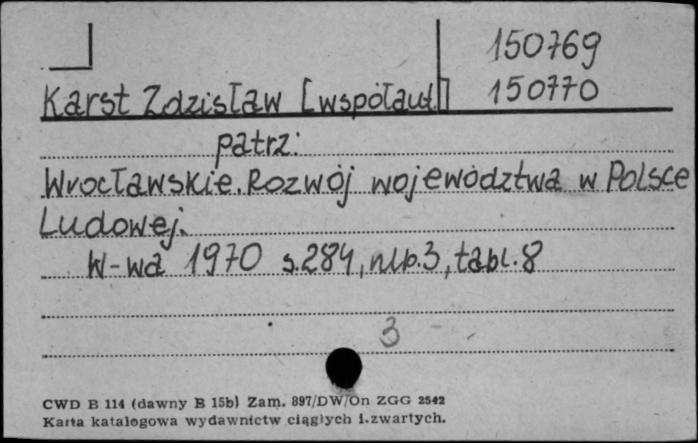 150769
Karst Zdzisław [współaut.] 150770
patrz:
Wrocławskie. Rozwój województwa w Polsce
Ludowej.
W-wa 1970 s.284, nlb.3, tabl.8
3
CWD B 114 (dawny B 15b) Zam. 897/DW/On ZGG 2542
Karta katalogowa wydawnictw ciągłych i zwartych.